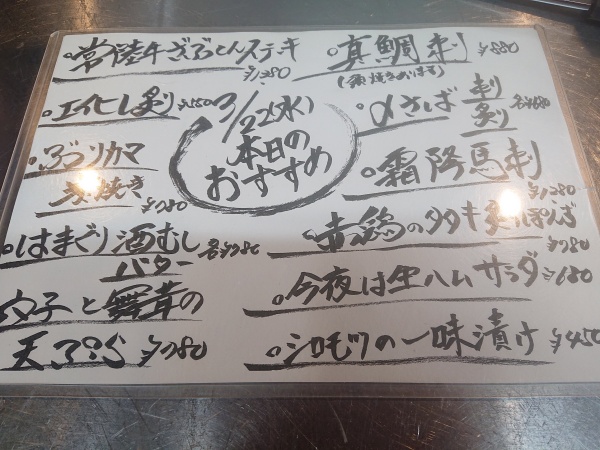 3/22(水)
本日の
おすすめ
。常陸牛ざぶとんステキ
¥1,380
。エイヒレ炙り ¥550
。ブリカマ
炭焼き
¥780
。はまぐり酒むし
バター 各¥780
穴子と舞茸の
天ぷら ¥780
。真鯛刺 ¥880
。〆さば 刺 炙り 各¥680
。霜降馬刺
¥1,280
。赤鶏のタタキ
¥780
。今夜は生ハムサラダ ¥680
。シロモツの一味漬け ¥450